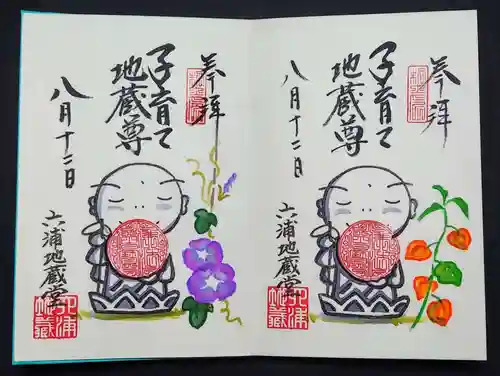 奉拝
子育て
地蔵尊
八月十二日
六浦地蔵堂
六浦
地蔵
奉拝
子育て
地蔵尊
八月十二日
六浦地蔵堂
六浦
地蔵